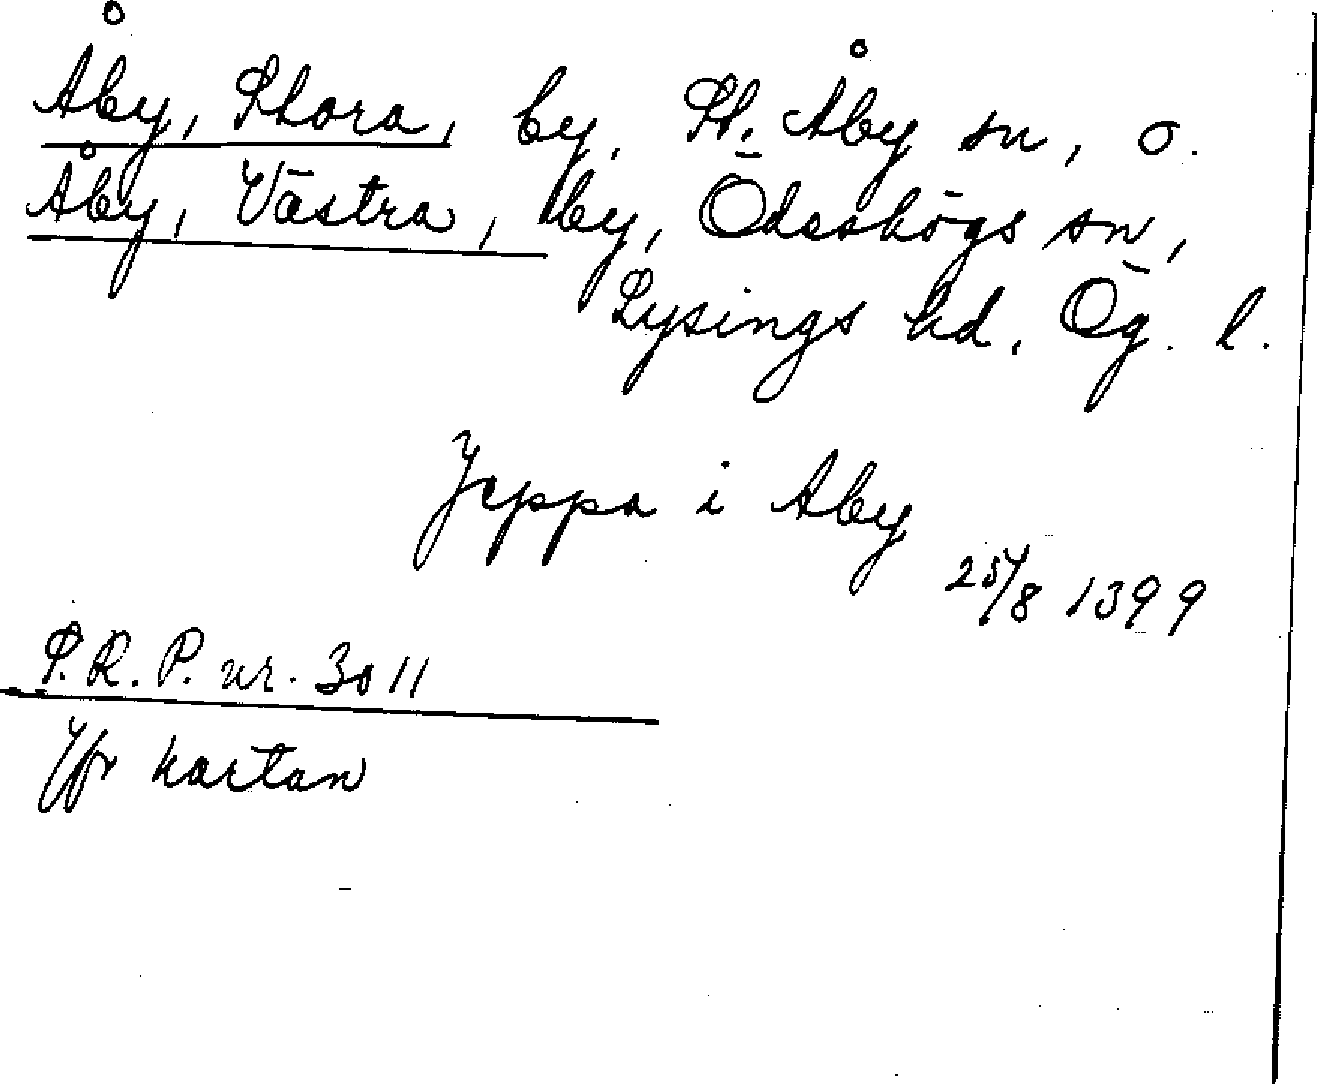 Åby, Stora, by, St. Åby sn, o.
Åby, Västra, by, Ödeshögs sn,
Lysings hd, Ög. l.
Jeppa i Aby
25/8 1399
S.R.P. nr. 3011
Jfr kartan